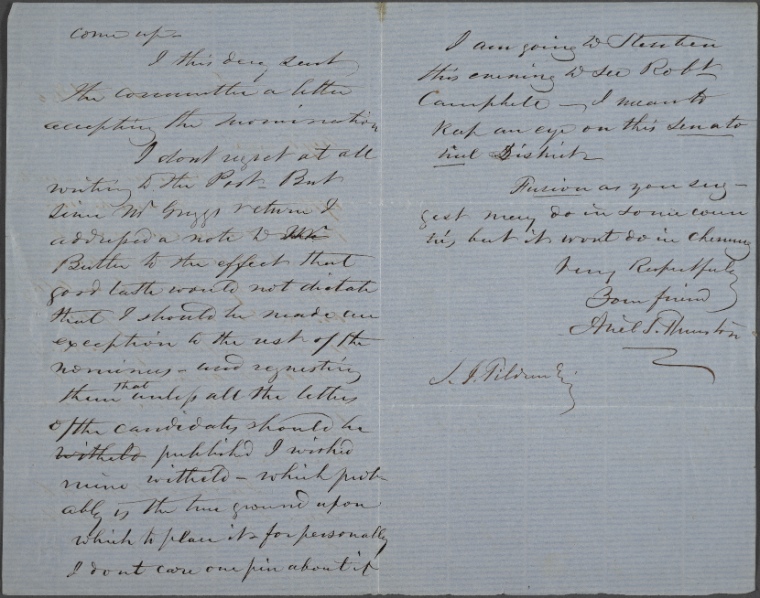 come up—
I this day sent
the committee a letter
accepting the nomination
I dont regret at all
writing to the Post— But
since Mr Griggs return I
addressed a note to
Butler to the effect that
good taste would not dictate
that I should be made an
exception to the rest of the
nominees — and requesting
them that unless all the letters
of the candidates should be
witheld published I wished
mine witheld — which prob
ably is the true ground upon
which to place it for personally
I dont care one pin about it
I am going to Steuben
this evening to see Robt
Campbell — I mean to
keep an eye on this Senato
rial District
Fusion as you sug—
gest may do in some coun
ties but it wont do in Chemung
Very Respectfully
Your friend
Ariel S. Thurston
S. J. Tilden Esq